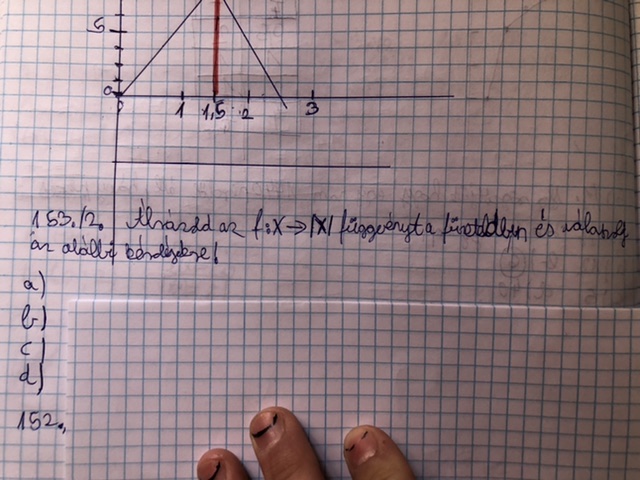 5
0
0 1 1,5 2 3
153./2. Ábrázold az f:X→|X| függvényt a füzetedben és válaszolj
az alábbi kérdésekre!
a)
b)
c)
d)
152.,